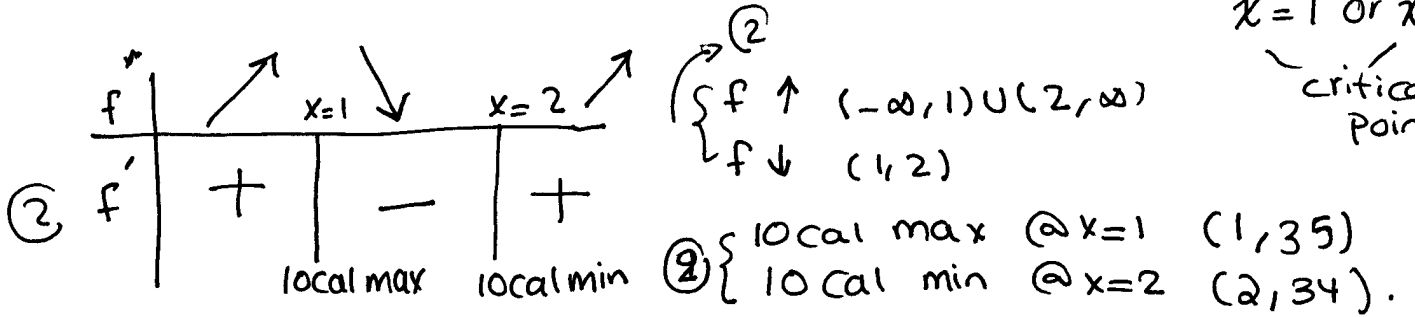 x = 1 or x
critica
poin
②
f ↗ x=1 ↘ x=2 ↗
② f' + − +
local max local min
f ↑ (-∞,1)∪(2,∞)
f ↓ (1,2)
② local max @ x=1 (1,35)
local min @ x=2 (2,34).